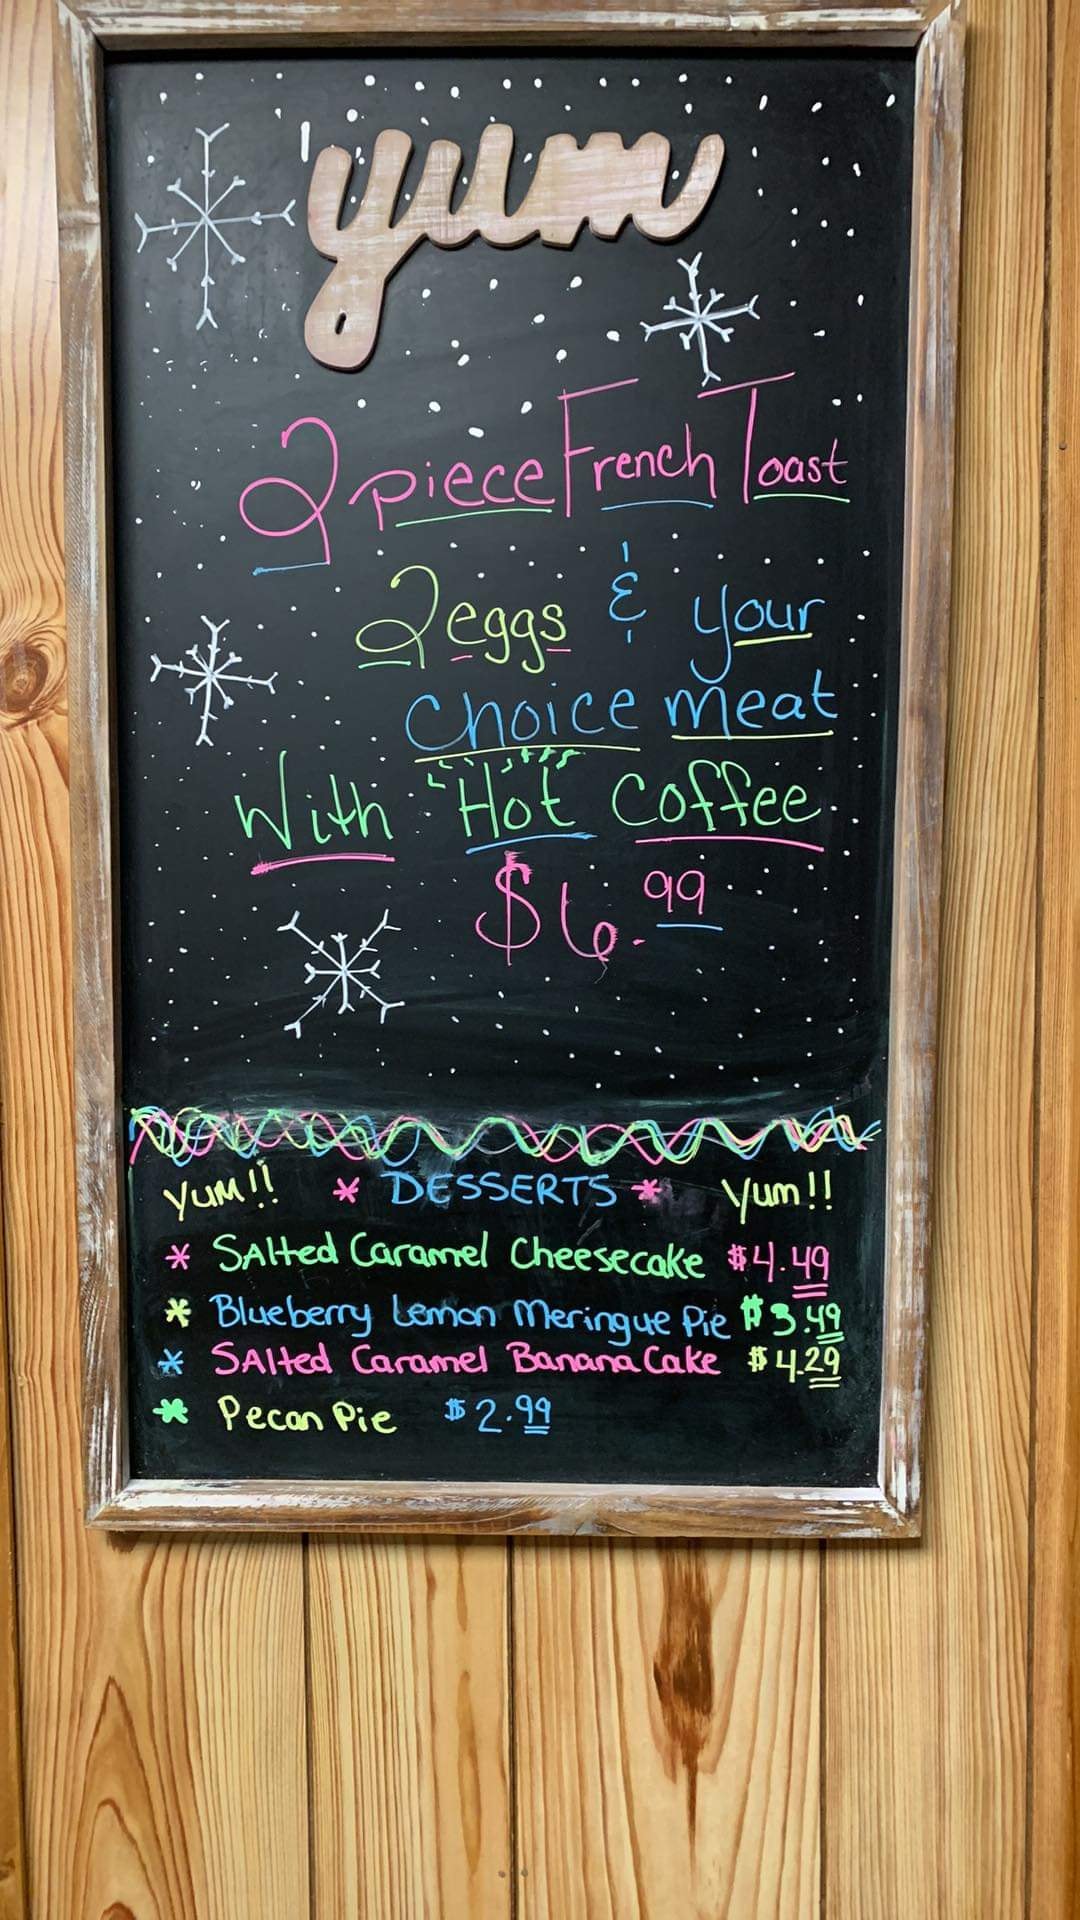 yum
2 piece French Toast
2 eggs & your
choice meat
With "Hot" Coffee
$6.99
YUM!! * DESSERTS * Yum!!
* SAlted Caramel Cheesecake $4.49
* Blueberry Lemon Meringue Pie $3.49
* SAlted Caramel Banana Cake $4.29
* Pecan Pie $2.99